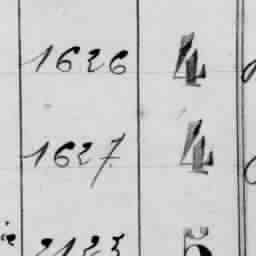 1626 4
1627. 4
2123 5